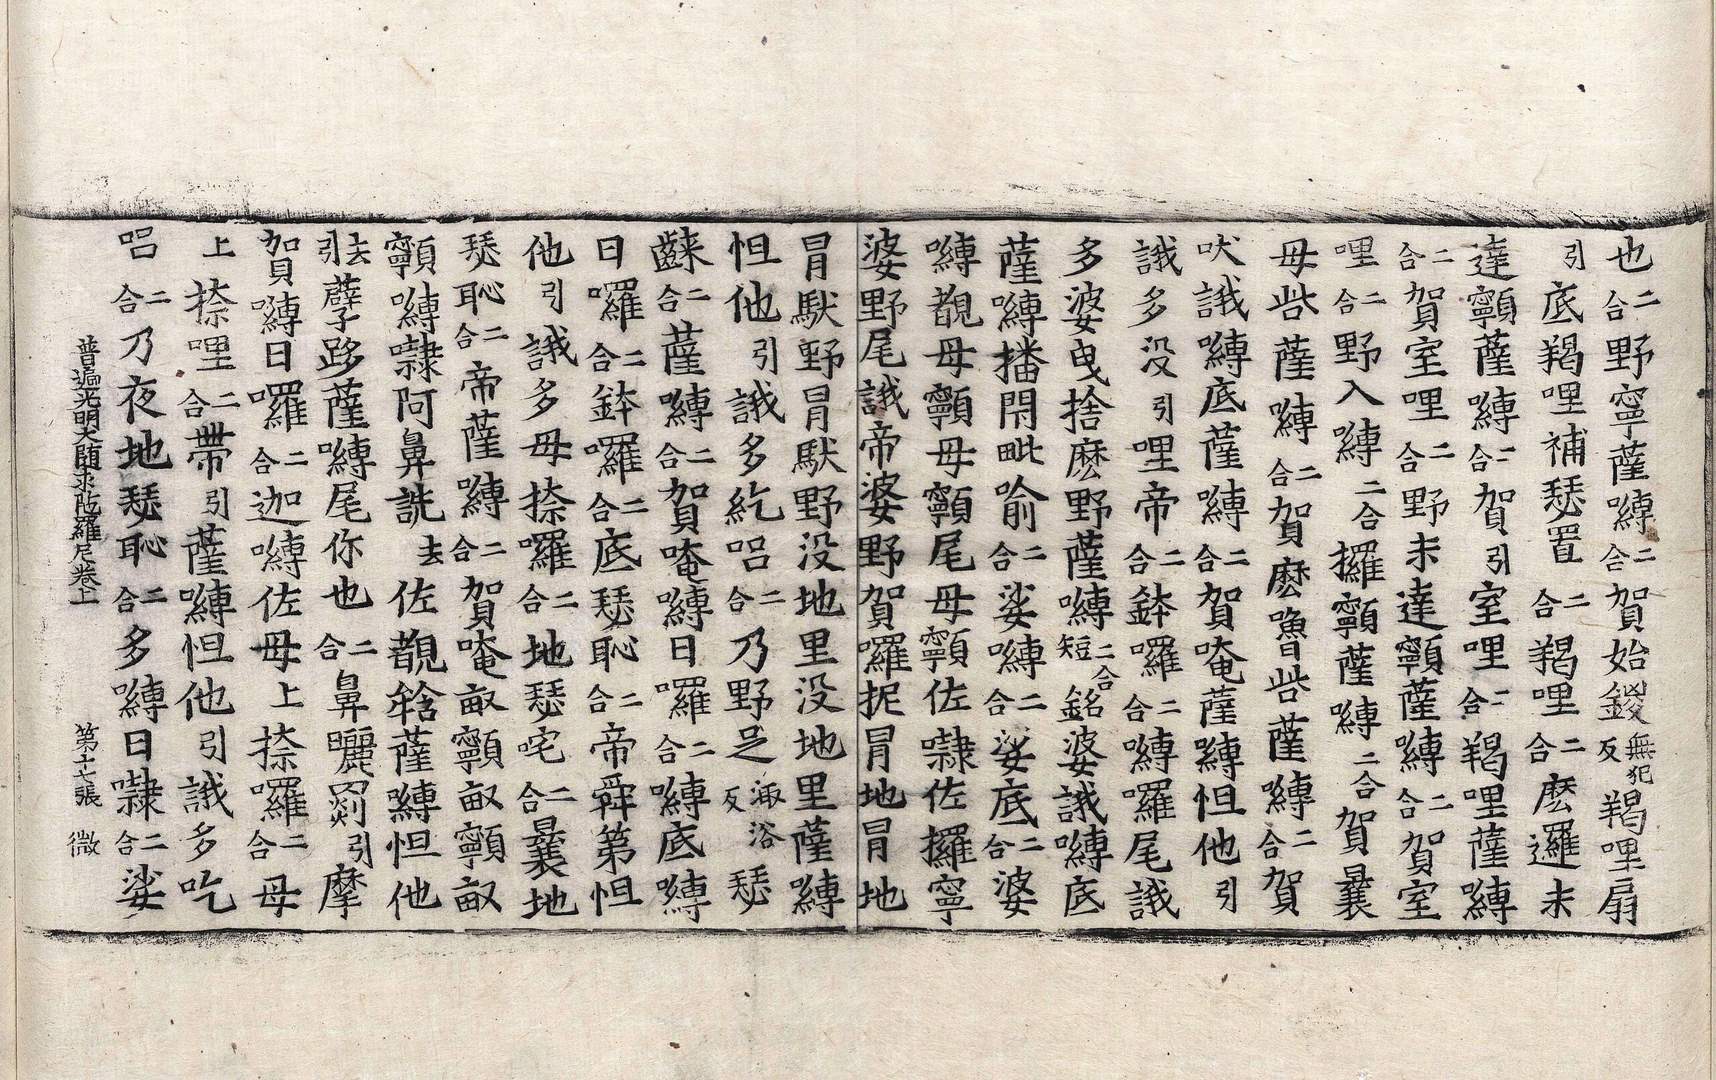 也二合野寧薩嚩二合賀始鋄無犯反羯哩扇
引底羯哩補瑟置二合羯哩二合麽邏末
達顰薩嚩二合賀引室哩二合羯哩薩嚩
二合賀室哩二合野末達顰薩嚩二合賀室
哩二合野入嚩二合攞顰薩嚩二合賀曩
母呰薩嚩二合賀麽嚕呰薩嚩二合賀
吠誐嚩底薩嚩二合賀唵薩嚩怛他引
誐多没引哩帝二合鉢囉二合嚩囉尾誐
多婆曳捨麽野薩嚩短二合銘婆誐嚩底
薩嚩播閇毗喻二合娑嚩二合娑底二合婆
嚩覩母顰母顰尾母顰佐隸佐攞寧
婆野尾誐帝婆野賀囉抳冐地冐地
冐馱野冐馱野没地里没地里薩嚩
怛他引誐多紇呂二合乃野足濈浴反瑟
齼二合薩嚩二合賀唵嚩日囉二合嚩底嚩
日囉二合鉢囉二合底瑟恥二合帝舜第怛
他引誐多母捺囉二合地瑟咤二合曩地
瑟恥二合帝薩嚩二合賀唵畝顰畝顰畝
顰嚩隸阿鼻詵去佐覩牟含薩嚩怛他
去引孽跢薩嚩尾你也二合鼻曬罽引摩
賀嚩日囉二合迦嚩佐母上捺囉二合母
上捺哩二合帶引薩嚩怛他引誐多吃
呂二合乃夜地瑟恥二合多嚩日隸二合娑
普遍光明大随求陁羅尼卷上 第十七張 微